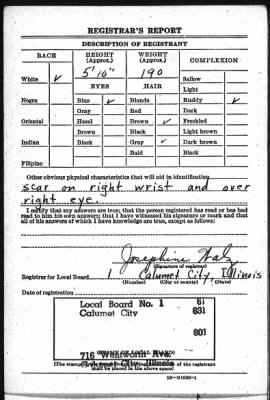 REGISTRAR'S REPORT
DESCRIPTION OF REGISTRANT
RACE HEIGHT (Approx.) WEIGHT (Approx.) COMPLEXION
White ✓ 5' 10" 190 Sallow
Light
EYES HAIR
Negro Blue ✓ Blonde Ruddy ✓
Gray Red Dark
Oriental Hazel Brown ✓ Freckled
Brown Black Light brown
Indian Black Gray ✓ Dark brown
Bald Black
Filipino
Other obvious physical characteristics that will aid in identification
scar on right wrist and over
right eye.
I certify that my answers are true; that the person registered has read or has had
read to him his own answers; that I have witnessed his signature or mark and that
all of his answers of which I have knowledge are true, except as follows:
Josephine
(Signature of registrar)
Registrar for Local Board 1 Calumet City, Illinois
(Number) (City or county) (State)
Date of registration
Local Board No. 1 61
Calumet City 031
801
716 Wentworth Ave.
(STAMP OF LOCAL BOARD)
Calumet City, Illinois
(The stamp of the Local Board having jurisdiction of the registrant
shall be placed in the above space)